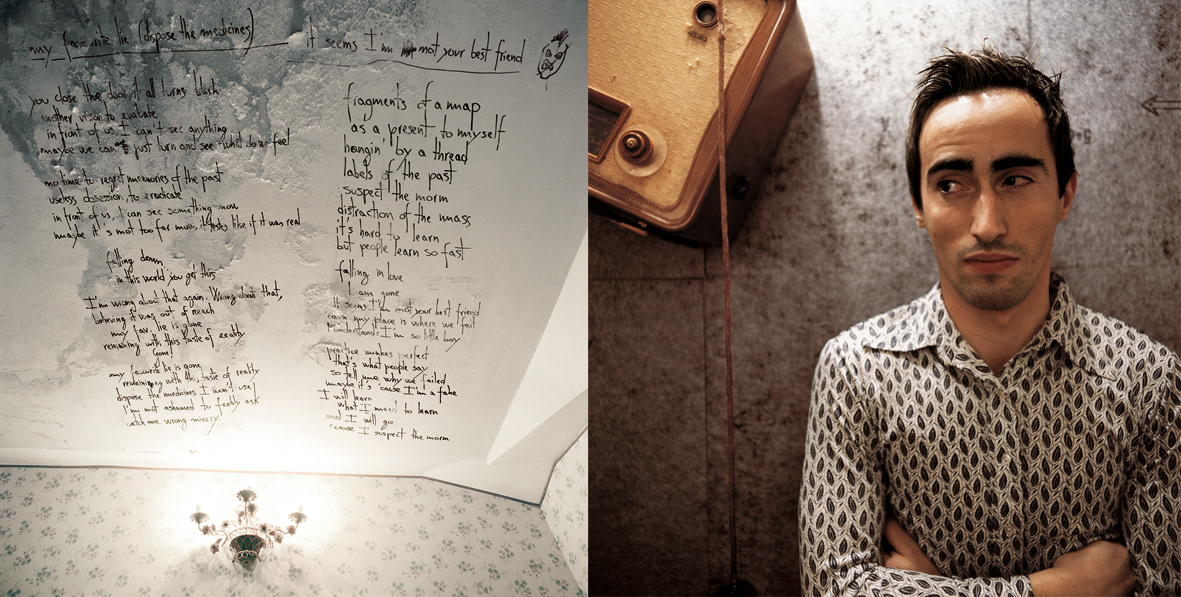 my favourite lie (dispose the medicines)
you close the door, it all turns black
another visor to evaluate
in front of us I can't see anything
maybe we can't just turn and see what do we feel
no time to regret memories of the past
useless obsession to eradicate
in front of us, I can see something now
maybe it's not too far now, it looks like if it was real
falling down
in this world you get this
I'm wrong about that again. Wrong about that,
believing it was out of reach
my fav. lie is gone
remaining with this taste of reality
Gone!
my favourite lie is gone
remaining with this taste of reality
dispose the medicines I won't use
I'm not ashamed to feebly ask
catch me wrong misery
it seems I'm not your best friend
fragments of a map
as a present to myself
hangin' by a thread
labels of the past
suspect the norm
distraction of the mass
it's hard to learn
but people learn so fast
falling in love
I am gone
It seems I'm not your best friend
'cause my place is where we fail
I understand: I'm so little boy
practice makes perfect
that's what people say
so tell me why we failed
maybe it's 'cause I'm a fake
I will learn
what I need to learn
and I will go
'cause I suspect the norm